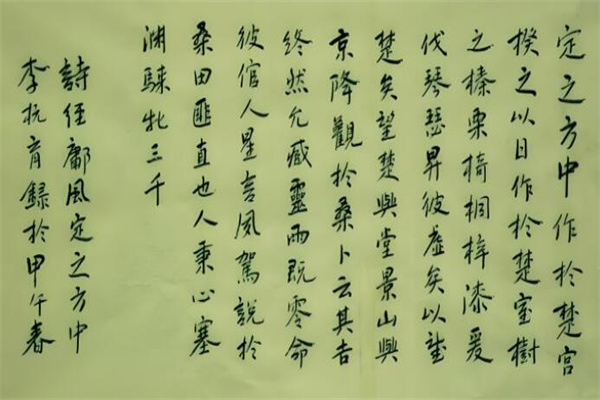 定之方中作於楚宮
揆之以日作於楚室樹
之榛栗椅桐梓漆爰
伐琴瑟昇彼虛矣以望
楚矣望楚與堂景山與
京降觀於桑卜云其吉
終然允臧靈雨既零命
彼倌人星言夙駕說於
桑田匪直也人秉心塞
渊騋牝三千
詩经鄘風定之方中
李杭育録於甲午春